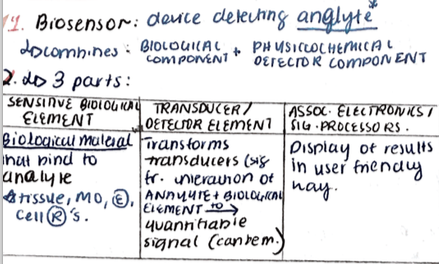 1. Biosensor: device detecting anglyte
↳ combines: BIOLOGICAL COMPONENT + PHYSICOCHEMICAL DETECTOR COMPONENT
2. ↳ 3 parts:
SENSITIVE BIOLOGICAL ELEMENT
Biological material
that bind to
analyte
↳ tissue, MO, Ⓔ,
cell Ⓡ's.
TRANSDUCER/
DETECTOR ELEMENT
Transforms
transducers (sig
fr. interaction of
ANALYTE + BIOLOGICAL
ELEMENT to →
quantifiable
signal (can be m.)
ASSOC. ELECTRONICS /
SIG. PROCESSORS.
Display of results
in user friendly
way.